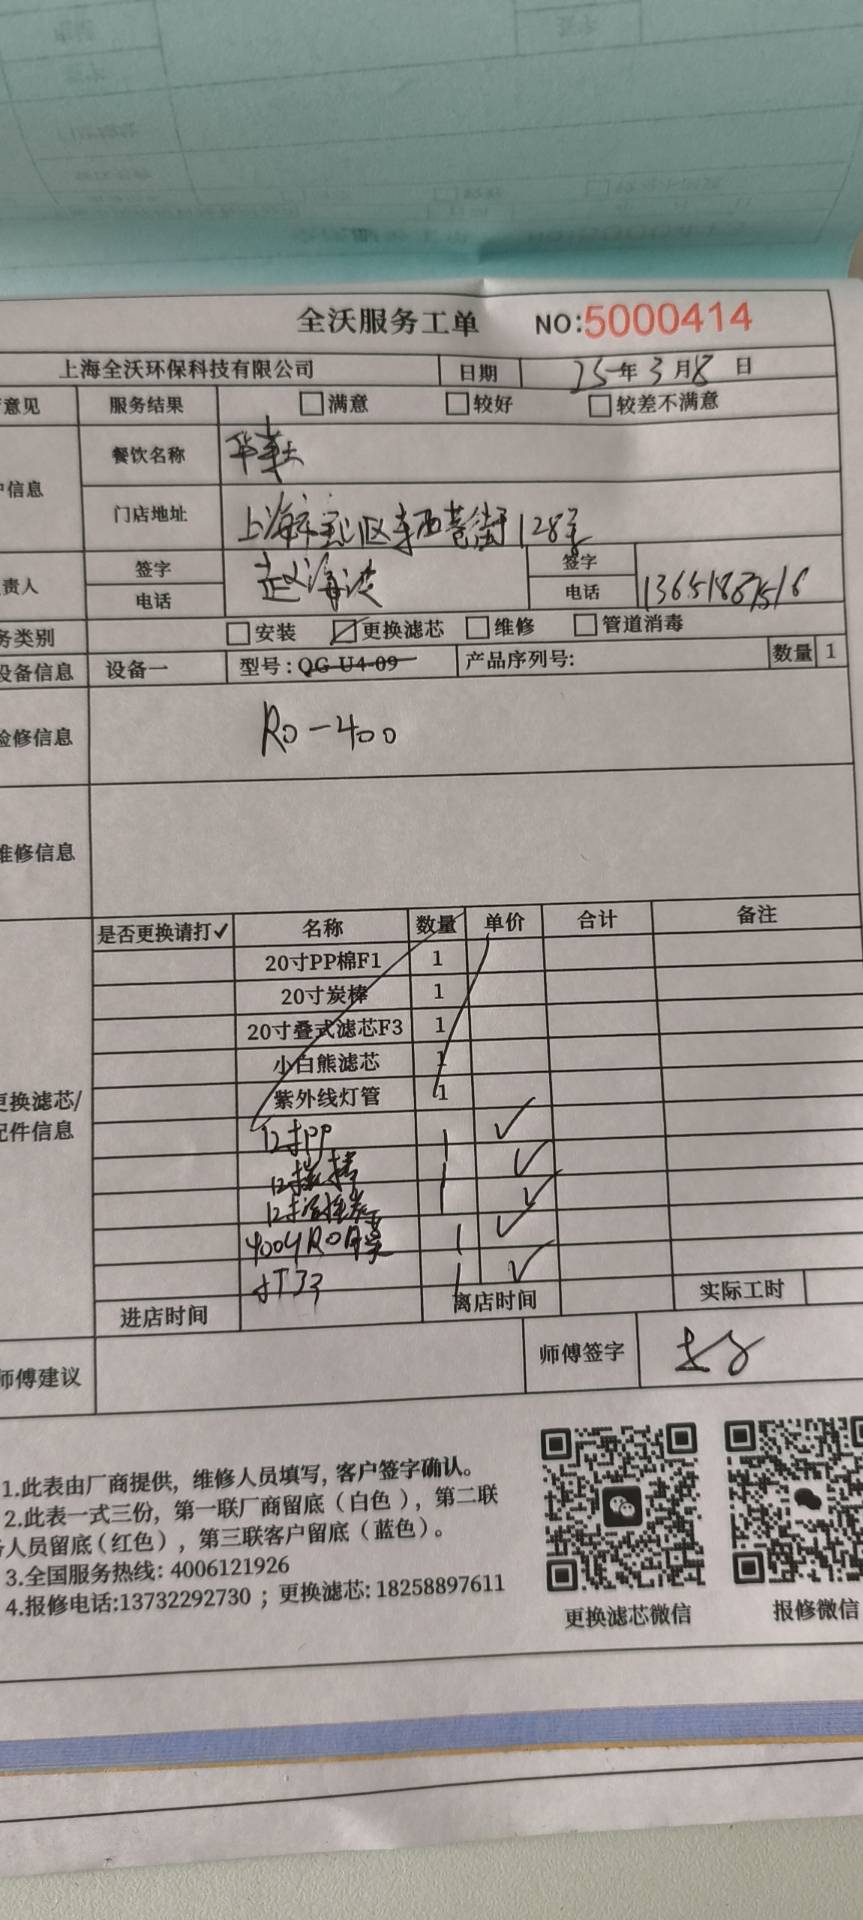 全沃服务工单 NO:5000414
上海全沃环保科技有限公司 日期 25年3月8日
意见 服务结果 满意 较好 较差不满意
餐饮名称 华莱士
信息
门店地址 上海市宝山区 128号
责人 签字 赵海涛 签字
电话 电话 13651887516
务类别 安装 更换滤芯 维修 管道消毒
设备信息 设备一 型号: QG-U4-09 产品序列号: 数量 1
检修信息 RO-400
维修信息
是否更换请打✓ 名称 数量 单价 合计 备注
20寸PP棉F1 1
20寸炭棒 1
20寸叠式滤芯F3 1
小白熊滤芯 1
紫外线灯管 1
更换滤芯/
配件信息
12寸PP 1 ✓
12寸炭棒 1 ✓
12寸 1 ✓
400G RO膜 1 ✓
T33 1 ✓
进店时间 离店时间 实际工时
师傅建议 师傅签字
1.此表由厂商提供, 维修人员填写, 客户签字确认。
2.此表一式三份, 第一联厂商留底(白色), 第二联
务人员留底(红色), 第三联客户留底(蓝色)。
3.全国服务热线: 4006121926
4.报修电话:13732292730 ; 更换滤芯: 18258897611
更换滤芯微信 报修微信